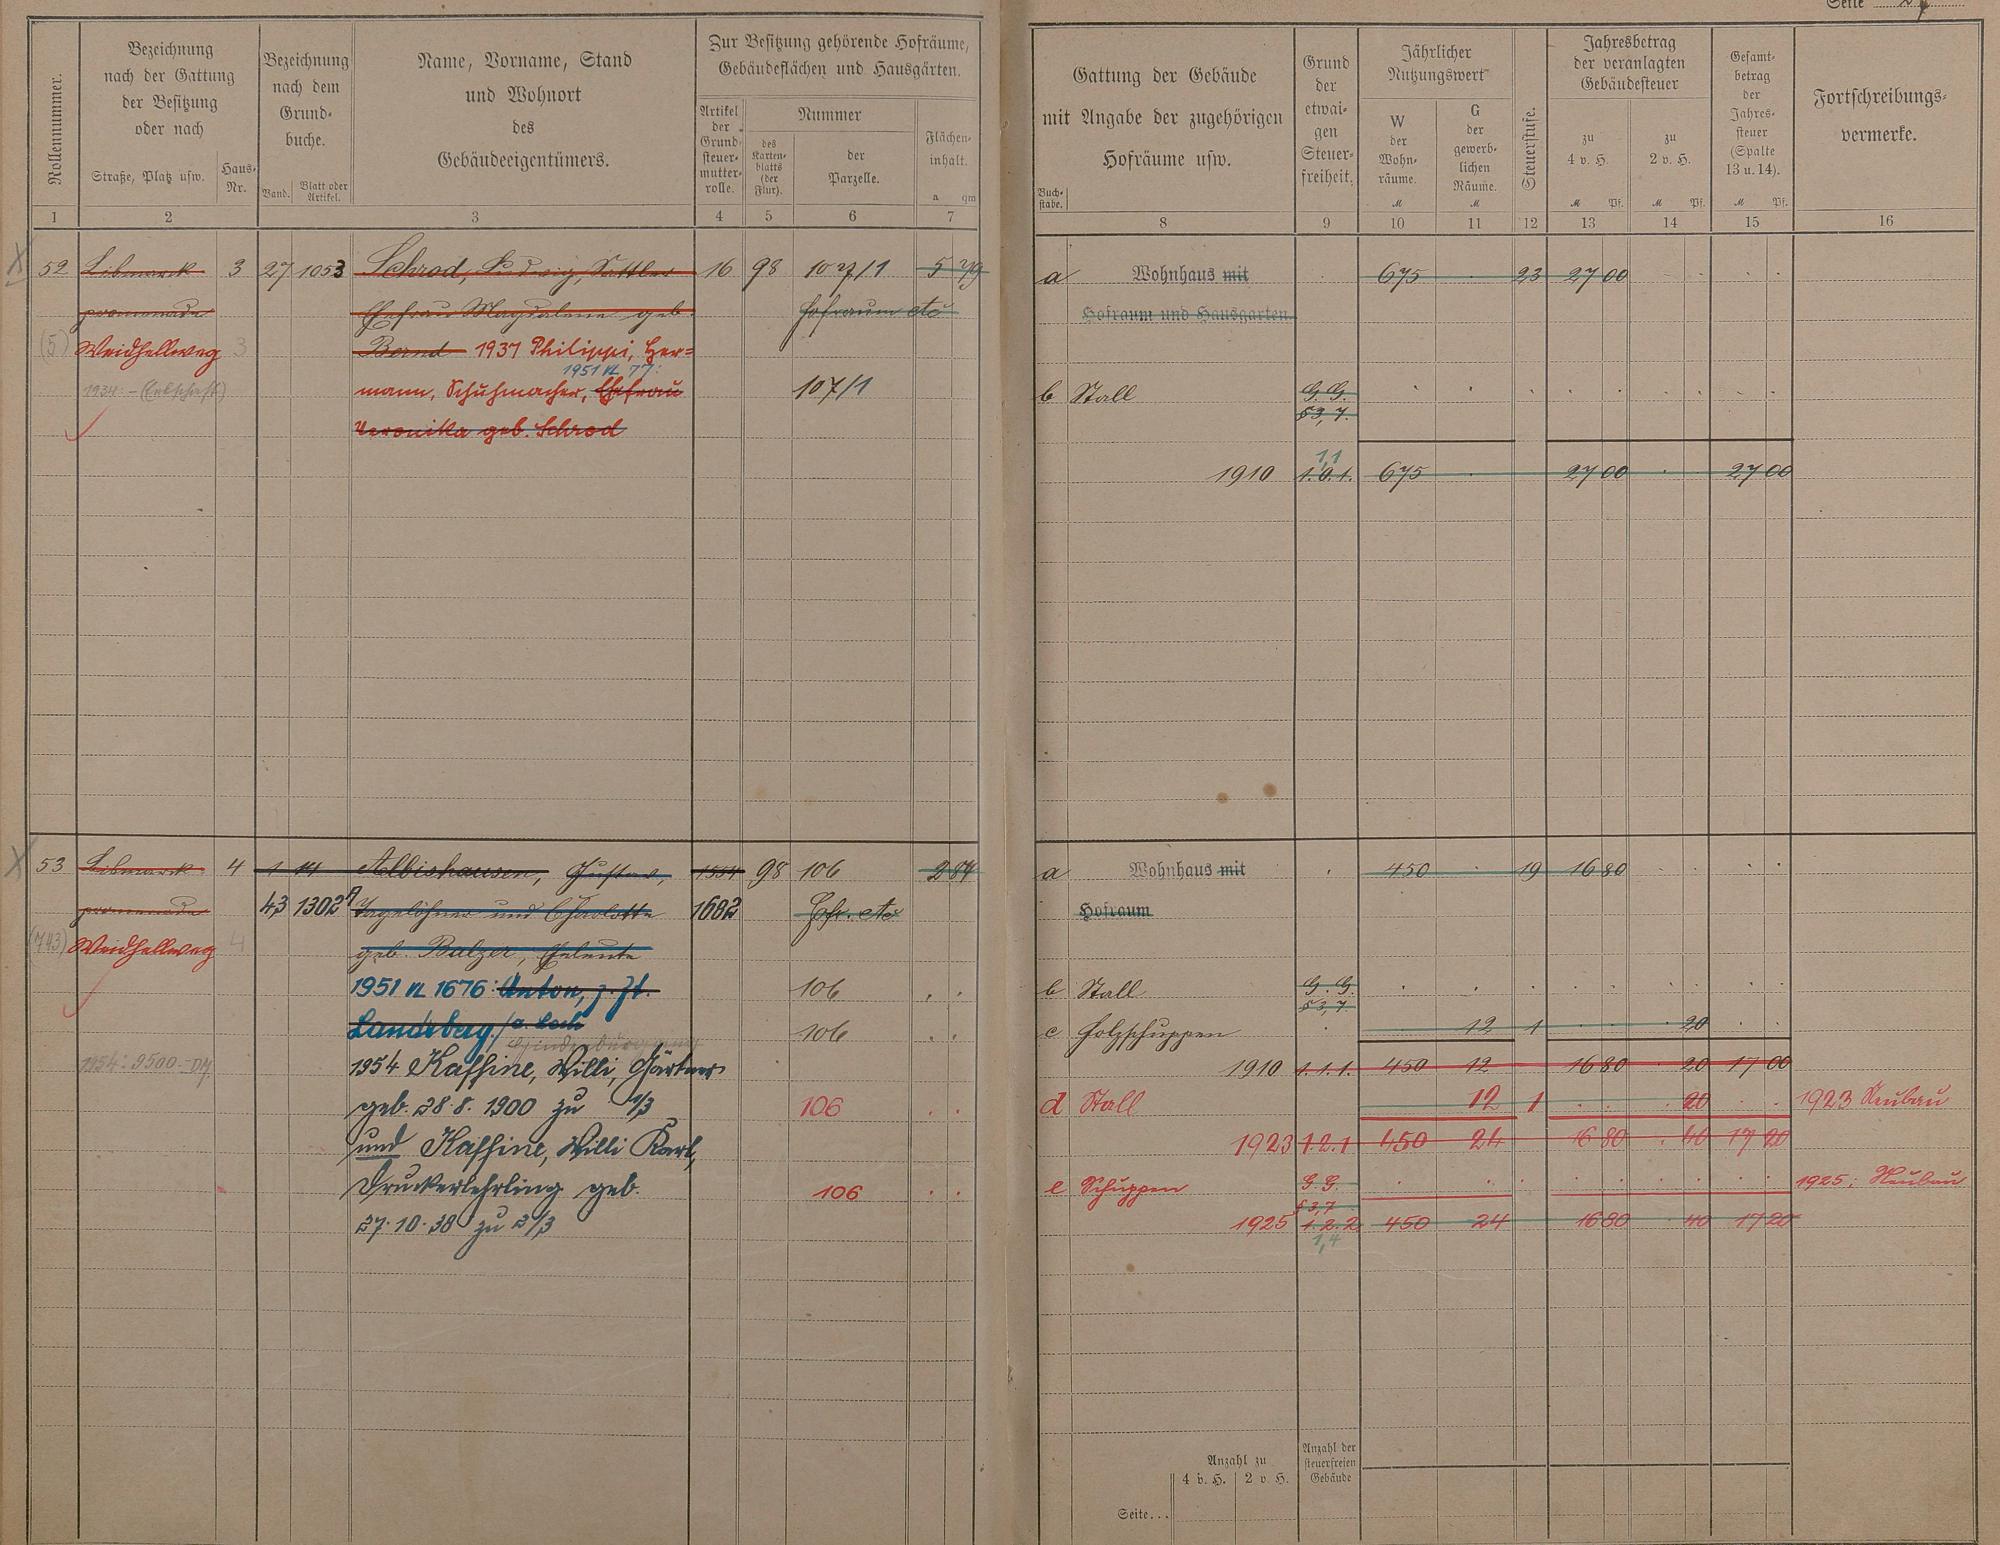 Seite 27
Rollennummer.
Bezeichnung
nach der Gattung
der Besitzung
oder nach
Straße, Platz usw.
Haus-
Nr.
Bezeichnung
nach dem
Grund-
buche.
Band.
Blatt oder
Artikel.
Name, Vorname, Stand
und Wohnort
des
Gebäudeeigentümers.
Zur Besitzung gehörende Hofräume,
Gebäudeflächen und Hausgärten.
Artikel
der
Grund-
steuer-
mutter-
rolle.
Nummer
des
Karten-
blatts
(der
Flur).
der
Parzelle.
Flächen-
inhalt.
a qm
1 2 3 4 5 6 7
Gattung der Gebäude
mit Angabe der zugehörigen
Hofräume usw.
Buch-
stabe.
Grund
der
etwai-
gen
Steuer-
freiheit.
Jährlicher
Nutzungswert
W
der
Wohn-
räume.
M
G
der
gewerb-
lichen
Räume.
M
Steuerstufe.
Jahresbetrag
der veranlagten
Gebäudesteuer
zu
4 v. H.
M Pf.
zu
2 v. H.
M Pf.
Gesamt-
betrag
der
Jahres-
steuer
(Spalte
13 u. 14).
M Pf.
Fortschreibungs-
vermerke.
8 9 10 11 12 13 14 15 16
52 Bismarck 3 27 1053 Schrod, Ludwig, Sattler 16 98 107/1 5 79
promenade Ehefrau Magdalene geb. Hofraum etc
(5) Weidhellweg 3 Bernd 1937 Philippi, Her-
1951 VL 77:
1934: - (Erbschaft) mann, Schuhmacher, Ehefrau 107/1
Veronika geb. Schrod
a Wohnhaus mit 675 23 27 00
Hofraum und Hausgarten.
b Stall G. G.
§3,7.
1,1
1910 1.0.1. 675 27 00 27 00
53 Bismarck 4 1 14 Albishausen, Gustav, 1554 98 106 2 84
promenade 43 1302A Tagelöhner und Charlotte 1682 Hofr. etc
(743) Weidhellweg 4 geb. Balzer, Eheleute
1951 VL 1676: Anton, z. Zt. 106
Landsberg/a. Lech 106
1954: 9500.- DM 1954 Kaffine, Willi, Gärtner
geb. 28.8. 1900 zu 1/3 106
und Kaffine, Willi Karl,
Druckerlehrling geb. 106
27.10.38 zu 2/3
a Wohnhaus mit 450 19 16 80
Hofraum
b Stall G. G.
§3,7.
c Holzschuppen 12 1 20
1910 1.1.1. 450 12 16 80 20 17 00
d Stall 12 1 20 1923 Neubau
1923 1.2.1 450 24 16 80 40 17 20
e Schuppen G. G. 1925: Neubau
§3,7
1925 1.2.2 450 24 16 80 40 17 20
1,4
Anzahl zu
4 v. H. 2 v. H.
Anzahl der
steuerfreien
Gebäude
Seite...